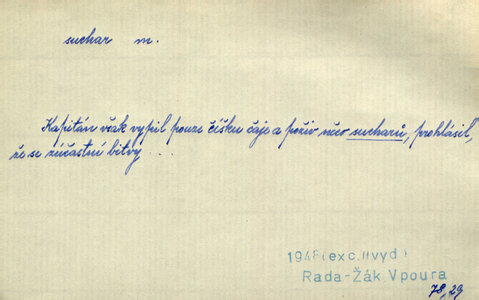 suchar m.
Kapitán však vypil pouze číšku čaje a požív něco sucharů, prohlásil,
že se zúčastní bitvy ...
1948 (exc. II vyd)
Rada-Žák Vpoura
78,29